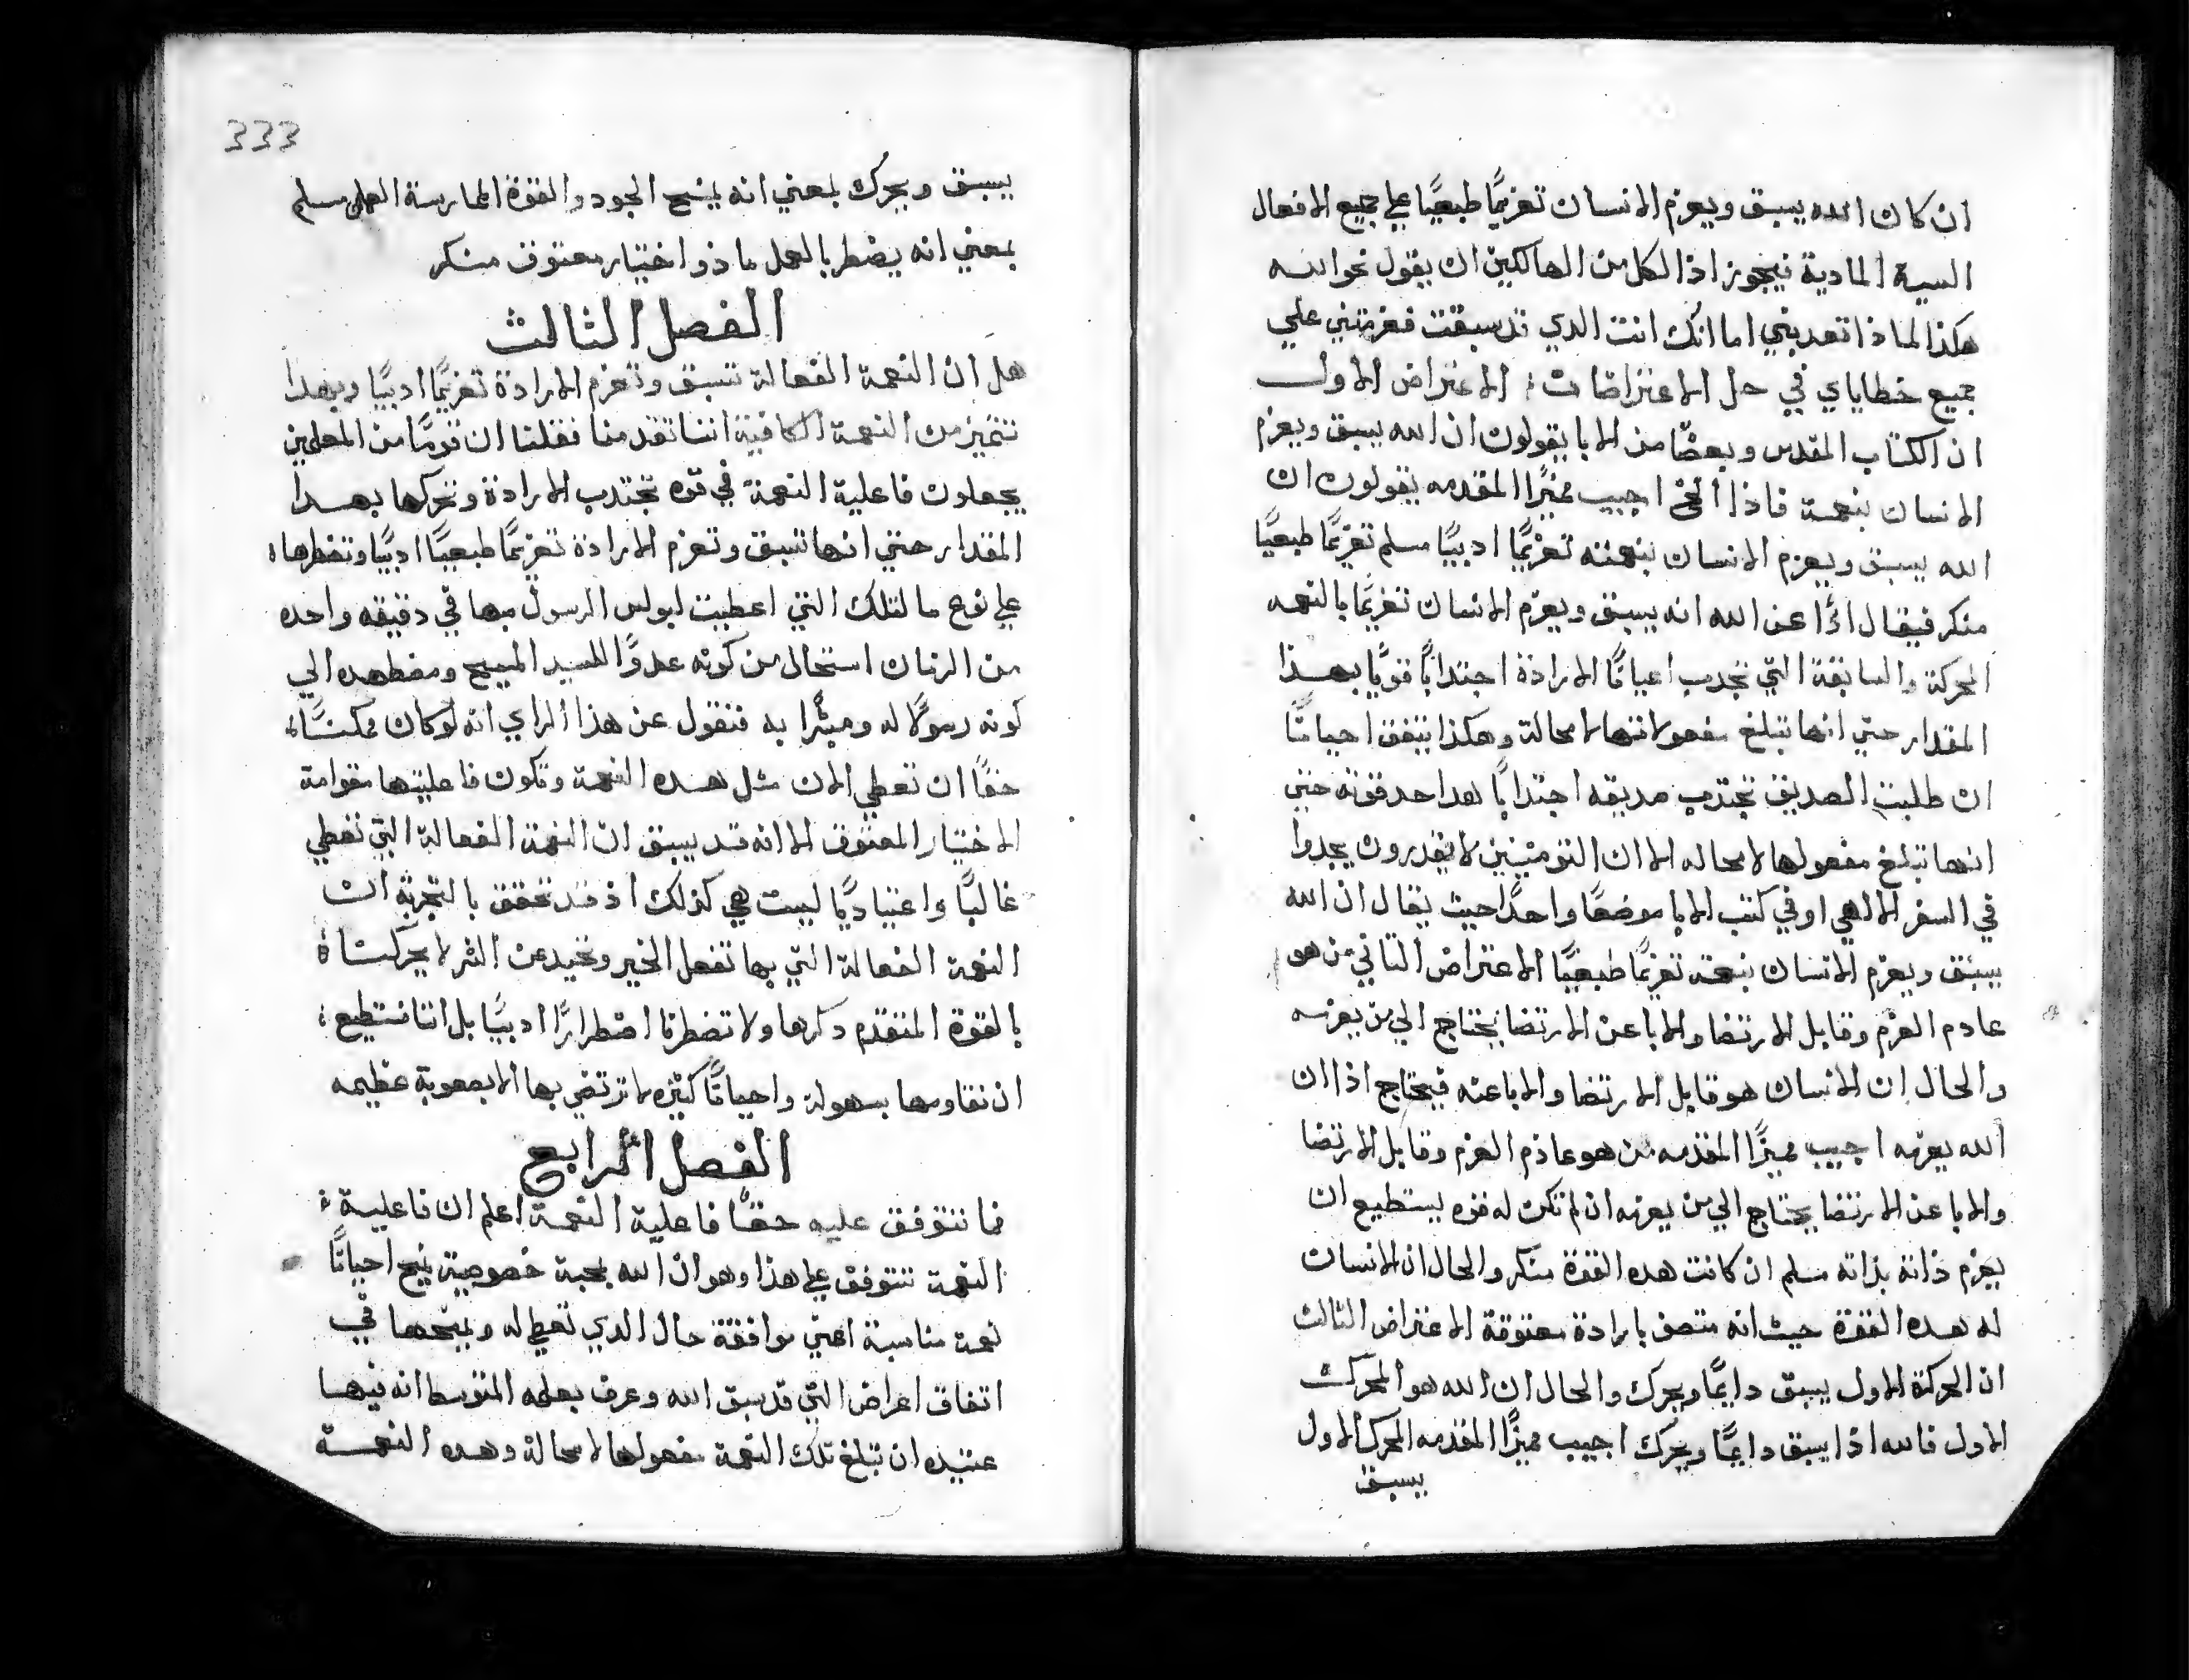 ان كان الله يسبق ويعزم الانسان تعزيمًا طبعيًا علي جميع الافعال
السية المادية فيجوز اذا لكل من الهالكين ان يقول نحو الله
هكذا لماذا تعدبني اما انك انت الدي قد سبقت فعزمتني علي
جميع خطاياي في حل الاعتراضات : الاعتراض الاول
ان الكتاب المقدس وبعضًا من الابا يقولون ان الله يسبق ويعزم
الانسان بنعمة فاذا الخ اجيب مميزًا المقدمه يقولون ان
الله يسبق ويعزم الانسان بنعمته تعزيمًا ادبيًا مسلم تعزيمًا طبعيًا
منكر فيقال اذًا عن الله انه يسبق ويعزم الانسان تعزيمًا بالنعمه
المحركة والسابقة التي تجدب احيانًا الارادة اجتدابًا قويًا بهذا
المقدار حتي انها تبلغ مفعولاتها لا محالة وهكذا يتفق احيانًا
ان طلبت الصديق تجتدب صديقه اجتدابًا هدا حد قوته حتي
انها تبلغ مفعولها لا محاله الا ان التوميتيين لا يقدرون يجدوا
في السفر الالهي او في كتب الابا موضعًا واحدًا حيث يقال ان الله
يسبق ويعزم الانسان بنعمته تعزيمًا طبعيًا الاعتراض التاني من هو
عادم العزم وقابل الارتضا والابا عن الارتضا يحتاج الي من يعزمه
والحال ان الانسان هو قابل الارتضا والابا عنه فيحتاج اذا ان
الله يعزمه اجيب مميزًا المقدمه من هو عادم العزم وقابل الارتضا
والابا عن الارتضا يحتاج الي من يعزمه ان لم تكن له قوه يستطيع ان
يعزم ذاته بذاته مسلم ان كانت هده القوة منكر والحال ان الانسان
له هده القوة حيث انه متصف بارادة معتوقة الاعتراض الثالث
ان الحركة الاول يسبق دايمًا ويحرك والحال ان الله هو المحرك
الاول فالله اذا يسبق دايمًا ويحرك اجيب مميزًا المقدمه المحرك الاول
يسبق
333
يسبق ويحرك بمعني انه يمنح الجود والقوة الممارسة العمل مسلم
بمعني انه يضطر بالعمل ما ذو اختيار معتوق منكر
الفصل الثالث
هل ان النعمة الفعالة تسبق وتعزم الارادة تعزيمًا ادبيًا وبهدا
تتميز من النعمة الكافية اننا تقدمنا فقلنا ان قومًا من المعلمين
يجعلون فاعلية النعمة في قوه تجتدب الارادة وتحركها بهدا
المقدار حتي انها تسبق وتعزم الارادة تعزيمًا طبعيًا ادبيًا وتضطرها :
علي نوع ما لتلك التي اعطيت لبولس الرسول مبها في دقيقه واحده
من الزمان استحال من كونه عدوًا للسيد المسيح ومضطهده الي
كونه رسولًا له ومبشرًا به فنقول عن هذا الراي انه لو كان ممكنًا
حقًا ان تعطي الان مثل هده النعمة وتكون فاعليتها مقوامة
الاختيار المعتوق الا انه قد يسبق ان النعمة الفعالة التي تعطي
غالبًا واعتياديًا ليست هي كذلك اذ قد تحقق بالتجربة ان
النعمة الفعالة التي بها تفعل الخير وتحيد عن الشر لا يحركنا
بالقوة المتقدم دكرها ولا تضطرنا اضطرارًا ادبيًا بل اننا نستطيع :
ان نقاومها بسهولة واحيانًا كتيره لا نرتضي بها الا بصعوبة عظيمه
الفصل الرابع
فما تتوقف عليه حقًا فاعلية النعمة اعلم ان فاعلية :
النعمة تتوقف علي هذا وهو ان الله بمحبة خصوصية يمنح احيانًا
نعمة مناسبة اعني موافقة حال الدي تعطي له ويمنحها في
اتفاق اعراض التي قد سبق الله وعرف بعلمه المتوسط انه فيها
عتيده ان تبلغ تلك النعمة مفعولها لا محالة وهده النعمة